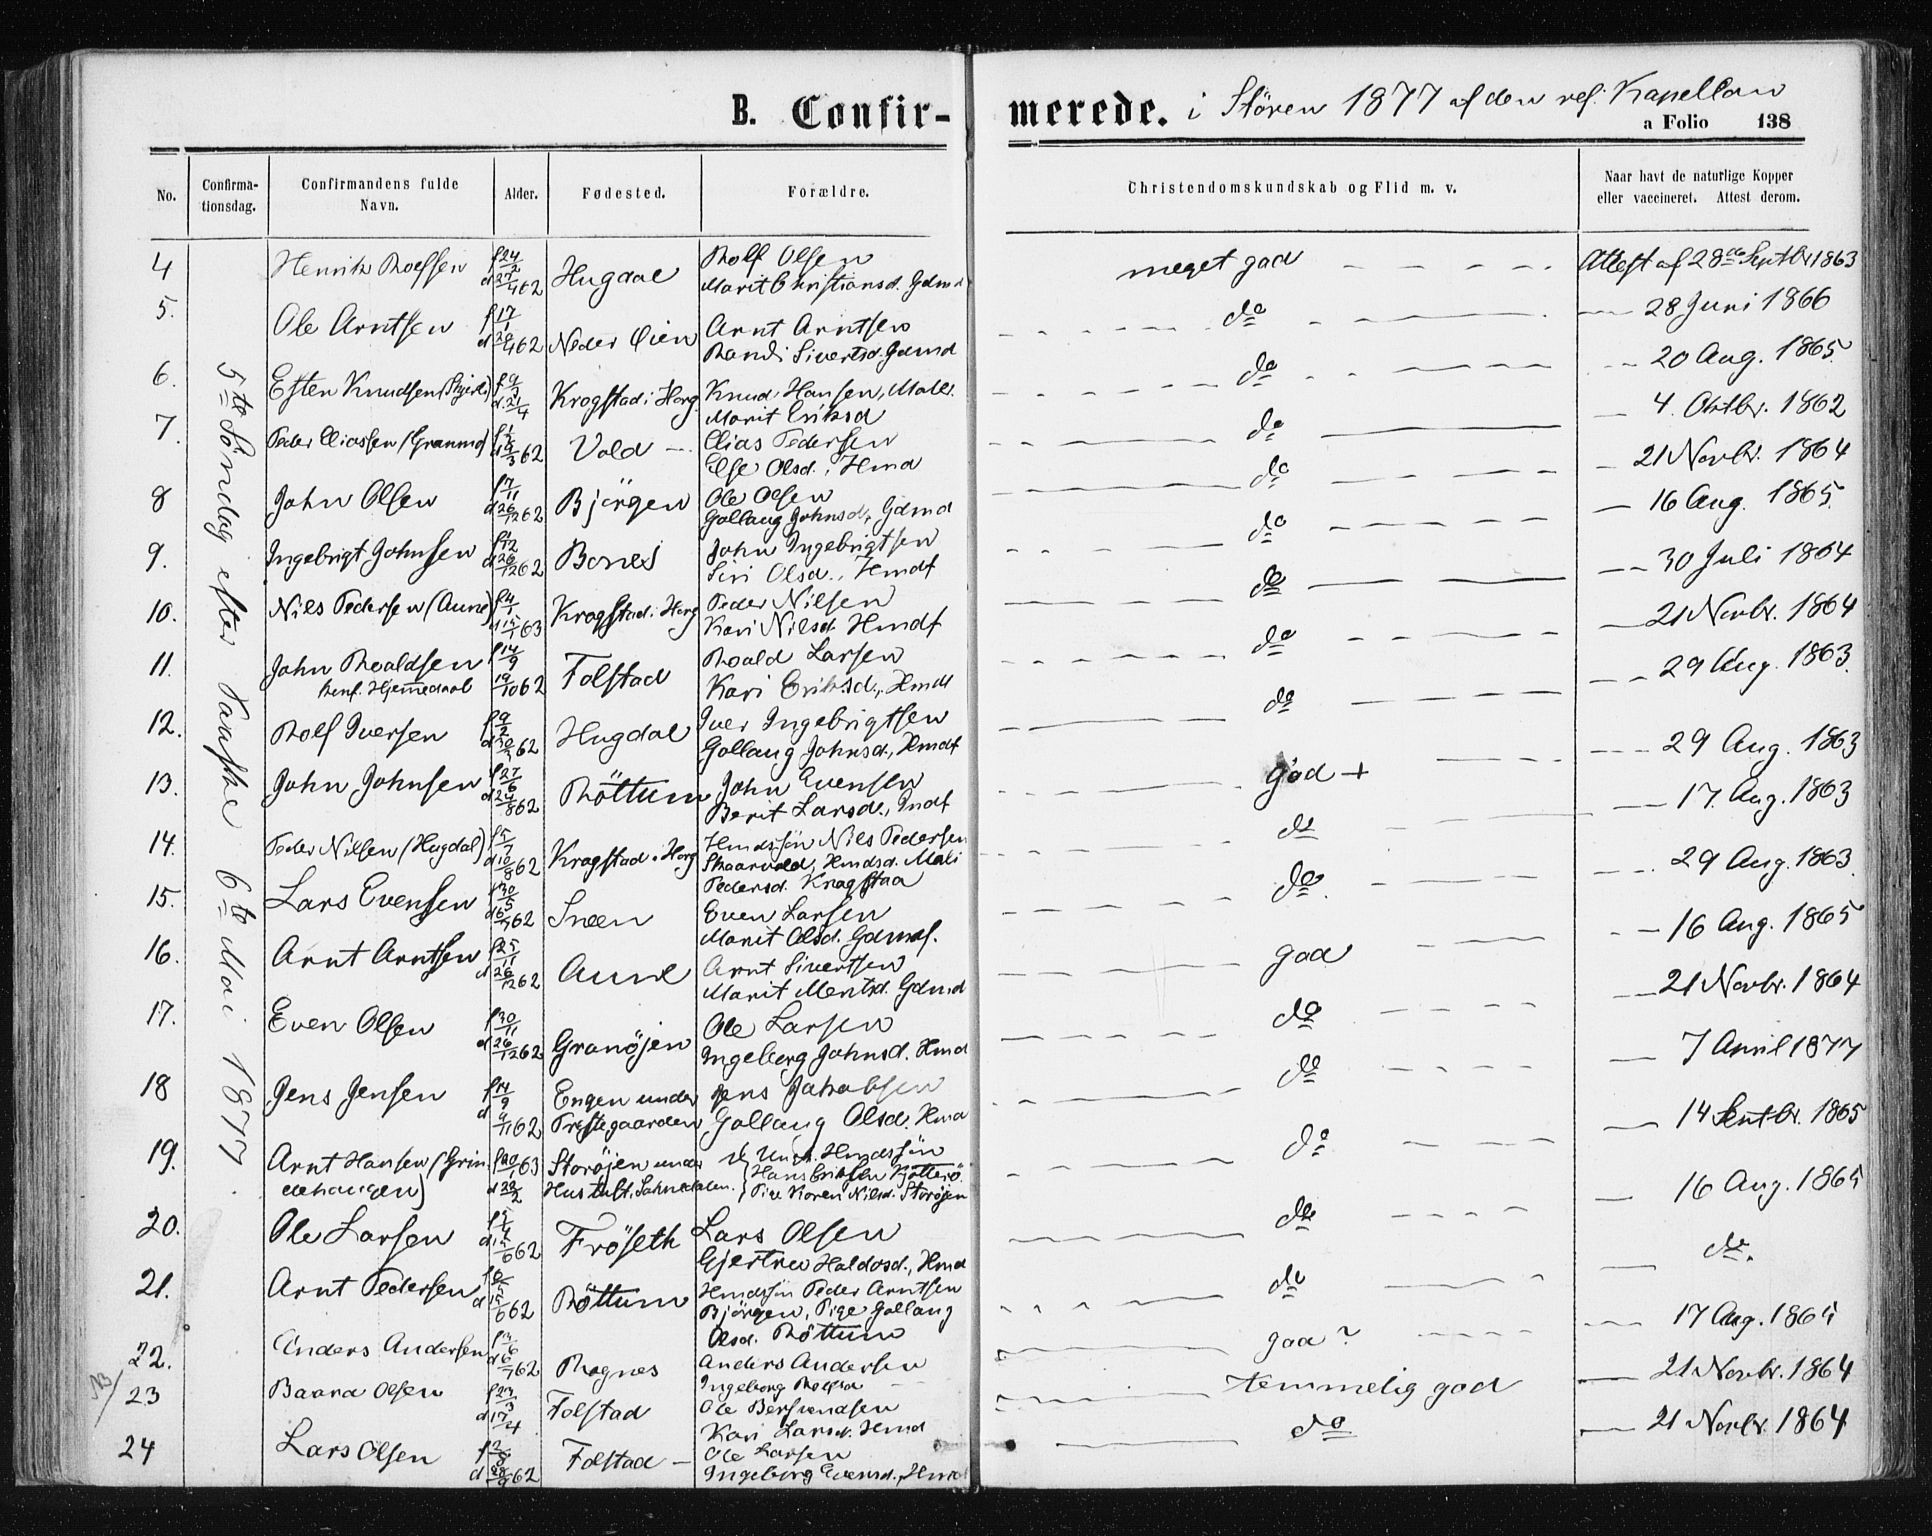 B. Confir-
merede. i Stören 1877 af den res. Kapellan
a Folio 138
No.
Confirma-
tionsdag.
Confirmandens fulde
Navn.
Alder.
Fødested.
Forældre.
Christendomskundskab og Flid m. v.
Naar havt de naturlige Kopper
eller vaccineret. Attest derom.
5te Söndag efter Paaske 6te Mai 1877
4 Henrik Rolfsen f 24/2 d 27/4 62 Hugdal Rolf Olsen
Marit Christiansd. Gdmd
meget god Attest af 28de Septbr 1863
5. Ole Arntsen f 17/1 62 Neder Öien Arnt Arntsen
Randi Sivertsd. Gdmd
do 28 Juni 1866
6. Esten Knudsen f 9/3 d. 21/4 Krogstad i Horg Knud Hansen, Maler
Marit Eriksd
do 20 Aug. 1865
7. Peder Eliassen (Granmo) 62 Vold Elias Pedersen
Else Olsd., Hmd
do 4. Oktbr. 1862
8 John Olsen f 7/11 d 26/12 62 Bjørgen Ole Olsen
Gollaug Johnsd, Gdmd
do 21 Novbr. 1864
9. Ingebrigt Johnsen d 26/12 62 Bones John Ingebrigtsen
Siri Olsd., Hmdf
do 16 Aug. 1865
10. Nils Pedersen (Aune) f 4/1 63 Krogstad i Horg Peder Nilsen
Kari Nilsd. Hmdf
do 30 Juli 1864
11. John Roaldsen f 14/9 19/10 62 Folstad Roald Larsen
konf. Hjemmedaab Kari Eriksd., Hmdf
do 21 Novbr. 1864
12. Rolf Iversen 62 Hugdal Iver Ingebrigtsen
Gollaug Johnsd., Hmdf
do 29 Aug. 1863
13. John Johnsen f 27/6 d 24/8 62 Röttum John Evensen
Berit Larsd., Indf
god + 29 Aug. 1863
14. Peder Nilsen (Hugdal) f 5/7 d 10/8 62 Krogstad i Horg Hmdssön Nils Pedersen
Skaarvold, Hmdsd. Mali
Pedersd. Krogstad
do 17. Aug. 1863
15. Lars Evensen f 30/5 62 Sneen Even Larsen
Marit Olsd. Gdmdf.
do. 29 Aug. 1863
16. Arnt Arntsen f 25/11 d 26/12 62 Aune Arnt Sivertsen
Marit Mentsd. Gdmd
god 16 Aug. 1865
17. Even Olsen f 30/11 d 26/12 62 Granöjen Ole Larsen
Ingeborg Johnsd. Hmd
do 21 Novbr. 1864
18 Jens Jensen f 14/9 d 9/11 62 Engen under Jens Jakobsen
Præstegaarden Gollaug Olsd. Hmd
do 7 April 1877
19. Arnt Hansen (Grin- 63 Storöjen under Hmdssön
dehaugen) Hans Eriksen
Pige Karen Nilsd. Storöjen
do 14 Septbr. 1865
20. Ole Larsen 62 Fröseth Lars Olsen
Gjertru Haldosd., Hmd
do 16 Aug. 1865
21. Arnt Pedersen 62 Röttum Hmdssön Peder Arntsen
Bjørgen, Pige Gollaug
Olsd. Röttum
do do.
22. Anders Andersen 62 Rognes Anders Andersen
Ingeborg Rolfsd
god? 17 Aug. 1865
NB/ 23 Baard Olsen f 23/3 d 17/4 Folstad Ole Bersvendsen
Kari Larsd. Hmd
temmelig god 21 Novbr. 1864
24 Lars Olsen 62 Folstad Ole Larsen
Ingeborg Evensd., Hmd
do 21 Novbr. 1864